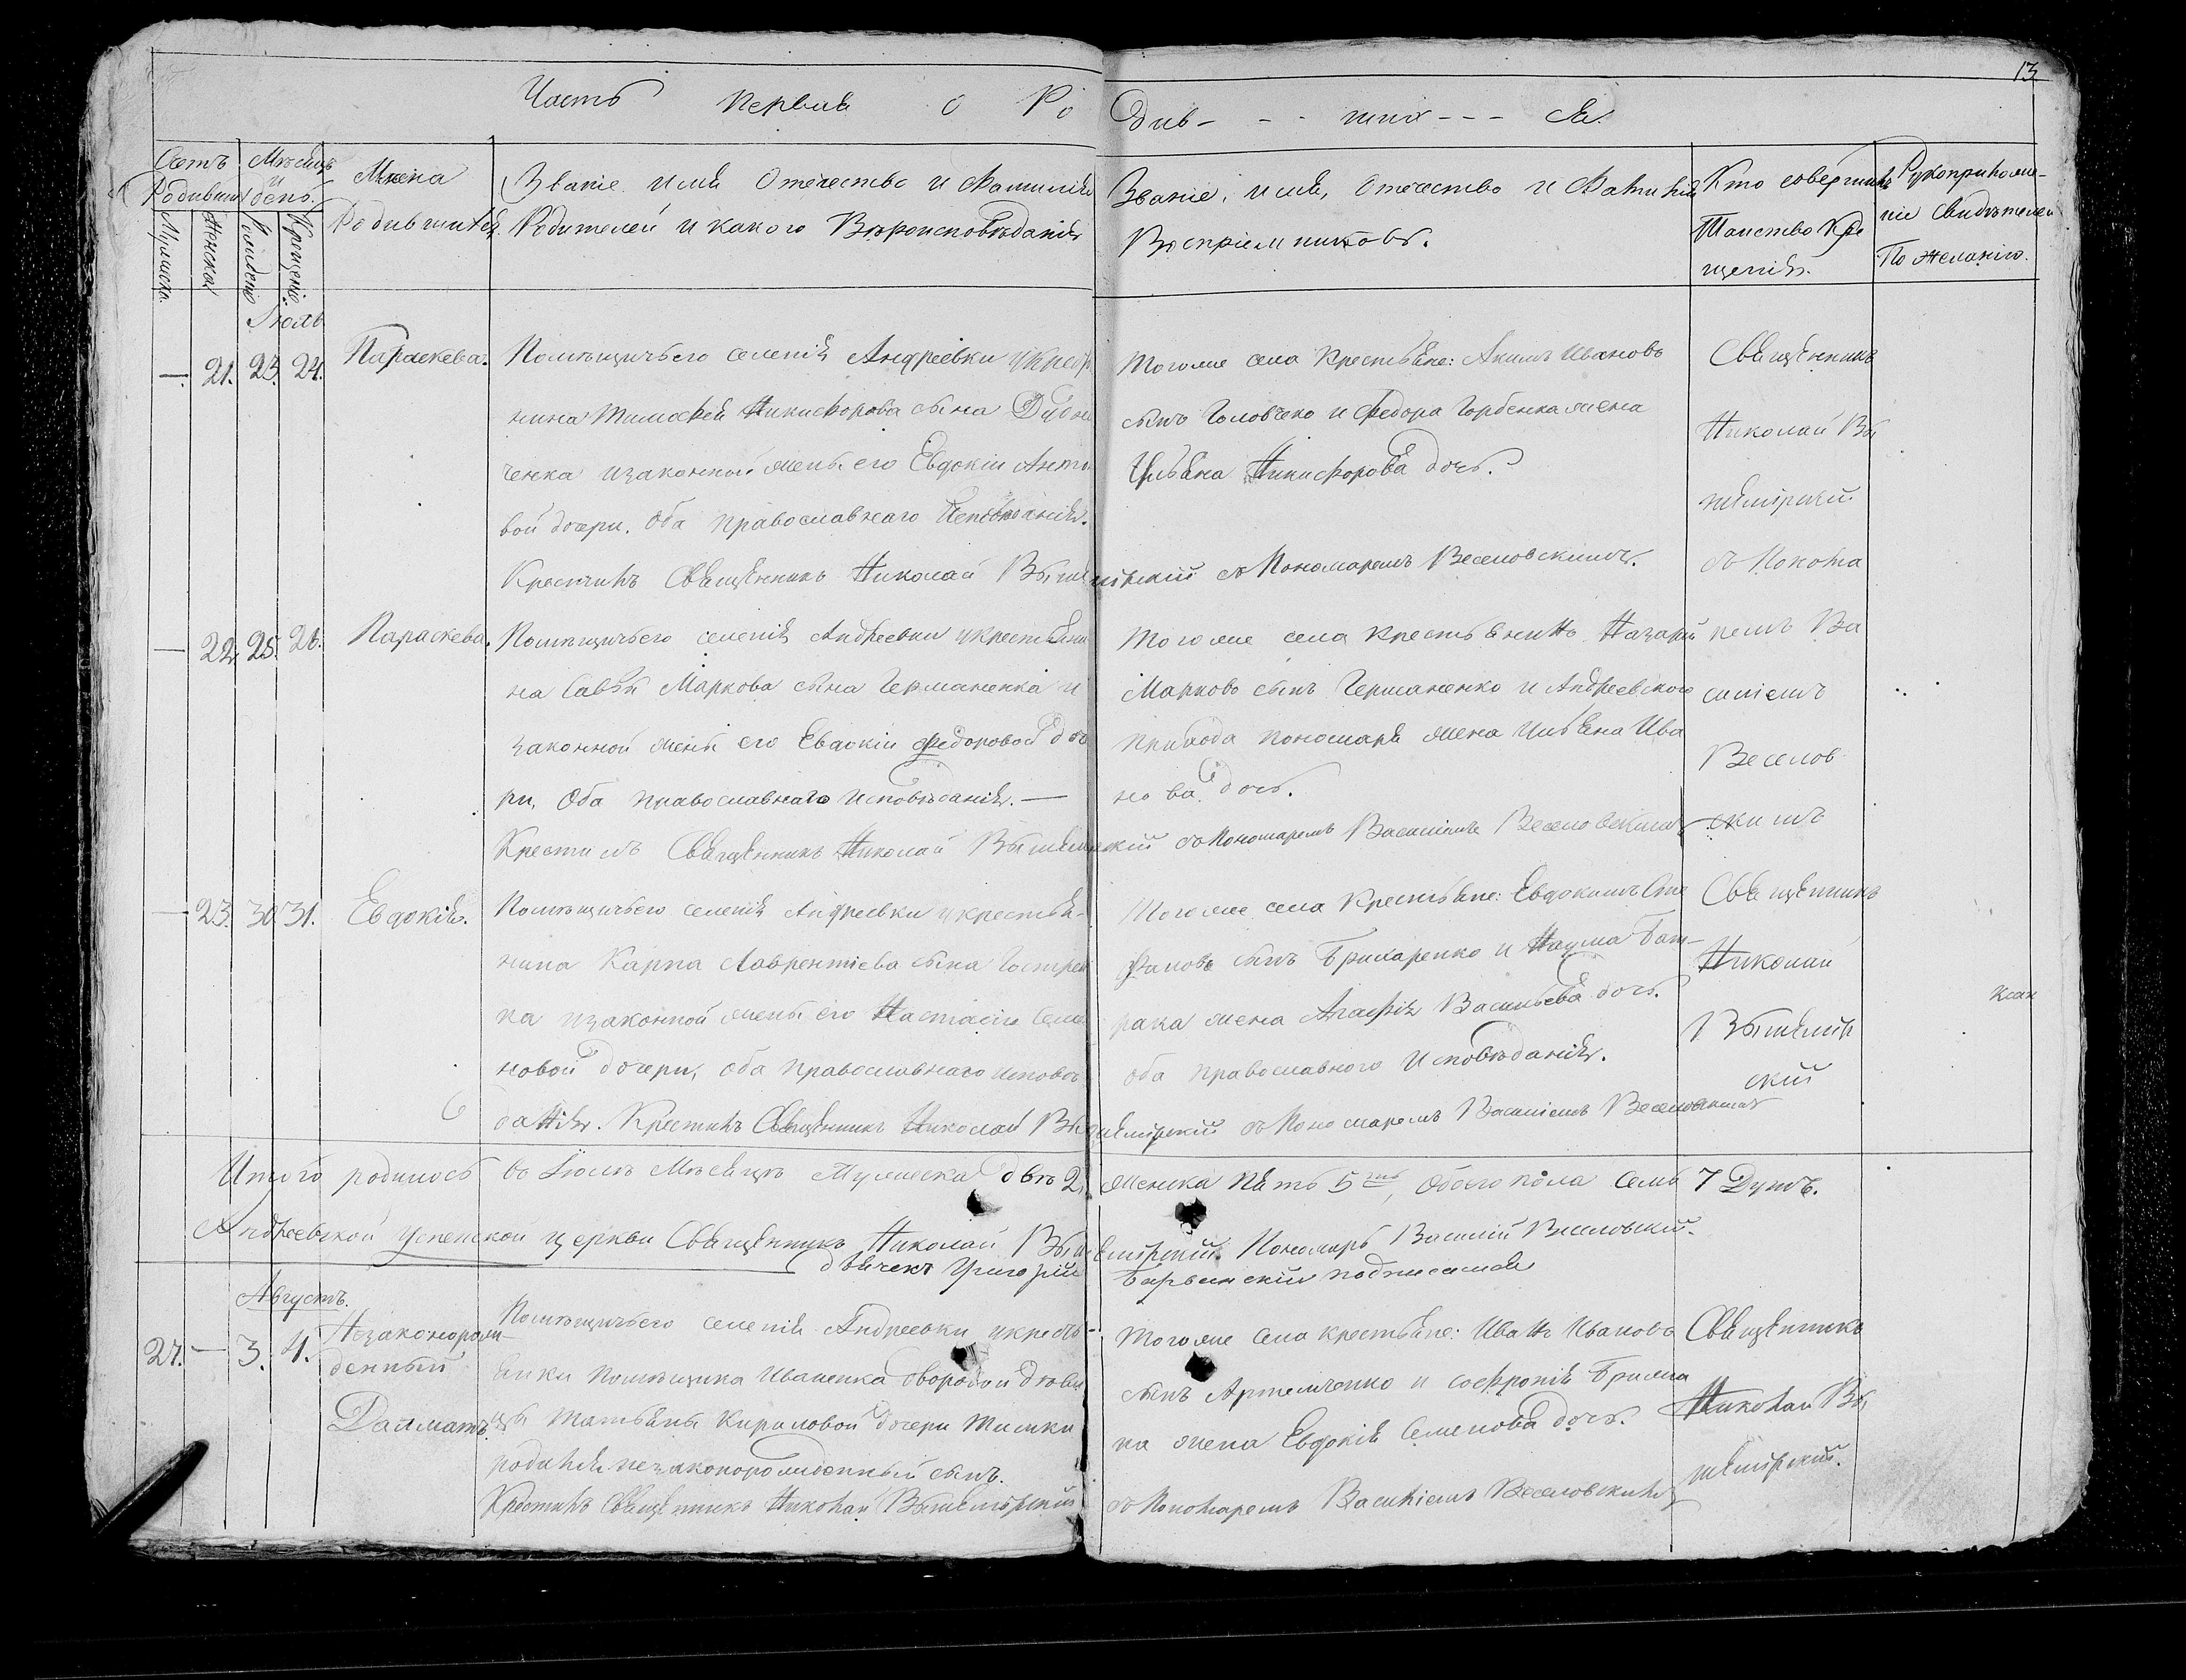 13
Часть Первая о Ро див- - - шиx - - - ся.
Счетъ Родившихся
Мѣсяцъ и день.
Имена Родившихся
Званіе имя Отечество и Фамилія
Родителей и какого Вѣроисповѣданія
Званіе, имя, Отечество и Фамилія
Воспріемниковъ.
Кто совершилъ
Таинство Кре
щенія.
Рукоприкладе-
ніе Свидѣтелей
По желанію.
Мужеска.
Женска
Рожденіе
Крещеніе.
Іюль
— 21. 23. 24. Параскева.
Помѣщичьего селенія Андреевки укрестья
нина Тимофея Никифорова сына
ченка изаконной жены его Евдокіи Анто
вой дочери. Оба православнаго Исповѣданія.
Крестилъ Священникъ Николай Вышемірский съ Пономаремъ Веселовскимъ.
Тогоже села Крестьяне: Акимъ Ивановъ
сынъ Головченко и Федора Горбенка жена
Ульяна Никифорова дочь.
Священникъ
Николай Вы
шемірский
съ Понома
ремъ Ва
силіемъ
Веселов
скимъ
— 22. 25. 26. Параскева.
Помѣщичьего селенія Андреевки укрестьяни
на Савы Маркова сына Германенка и
законной жены его Евдокіи Федоровой доч
ри, Оба православнаго Исповѣданія. —
Крестилъ Священникъ Николай Вышемірский съ Пономаремъ Василіемъ Веселовскимъ
Тогоже села крестьянинъ Назарій
Марковъ сынъ Германенко и Андреевского
прихода пономаря жена Ульяна Ива
нова дочь.
— 23. 30. 31. Евдокія.
Помѣщичьего селенія Андреевки укрестья-
нина Карпа Лаврентіева сына
ка изаконной жены его Настасіи Семе
новой дочери, оба православнаго исповѣ
данія. Крестилъ Священникъ Николай Вышемірский съ Пономаремъ Василіемъ Веселовскимъ
Тогоже села Крестьяне: Евдокимъ Сте
фановъ сынъ и Наума Бат-
рака жена Агафія Васильева дочь.
оба православного Исповѣданія.
Священникъ
Николай
Вышемір
ский
Итого родилось въ Іюлѣ Мѣсяцѣ Мужеска двѣ 2, женска пять 5ть, Обоего пола семь 7 Душъ.
Андреевской Успенской церкви Священникъ Николай Вышемірский. Пономарь Василій Веселовскій.
Дьячекъ Григорій подписался
Августъ.
27. — 3. 4. Незаконорож-
денный
Далматъ.
Помѣщичьего селенія Андреевки укресть-
янки помѣщика Иваненка дворовой дѣви
цы Татьяны Кириловой дочери
родился незаконорожденный сынъ.
Крестилъ Священникъ Николай Вышемірский съ Пономаремъ Василіемъ Веселовскимъ
Тогоже села крестьяне: Иванъ Ивановъ
сынъ Артемченко и Софронія
ка жена Евдокія Семенова дочь.
Священникъ
Николай Вы
шемірский.